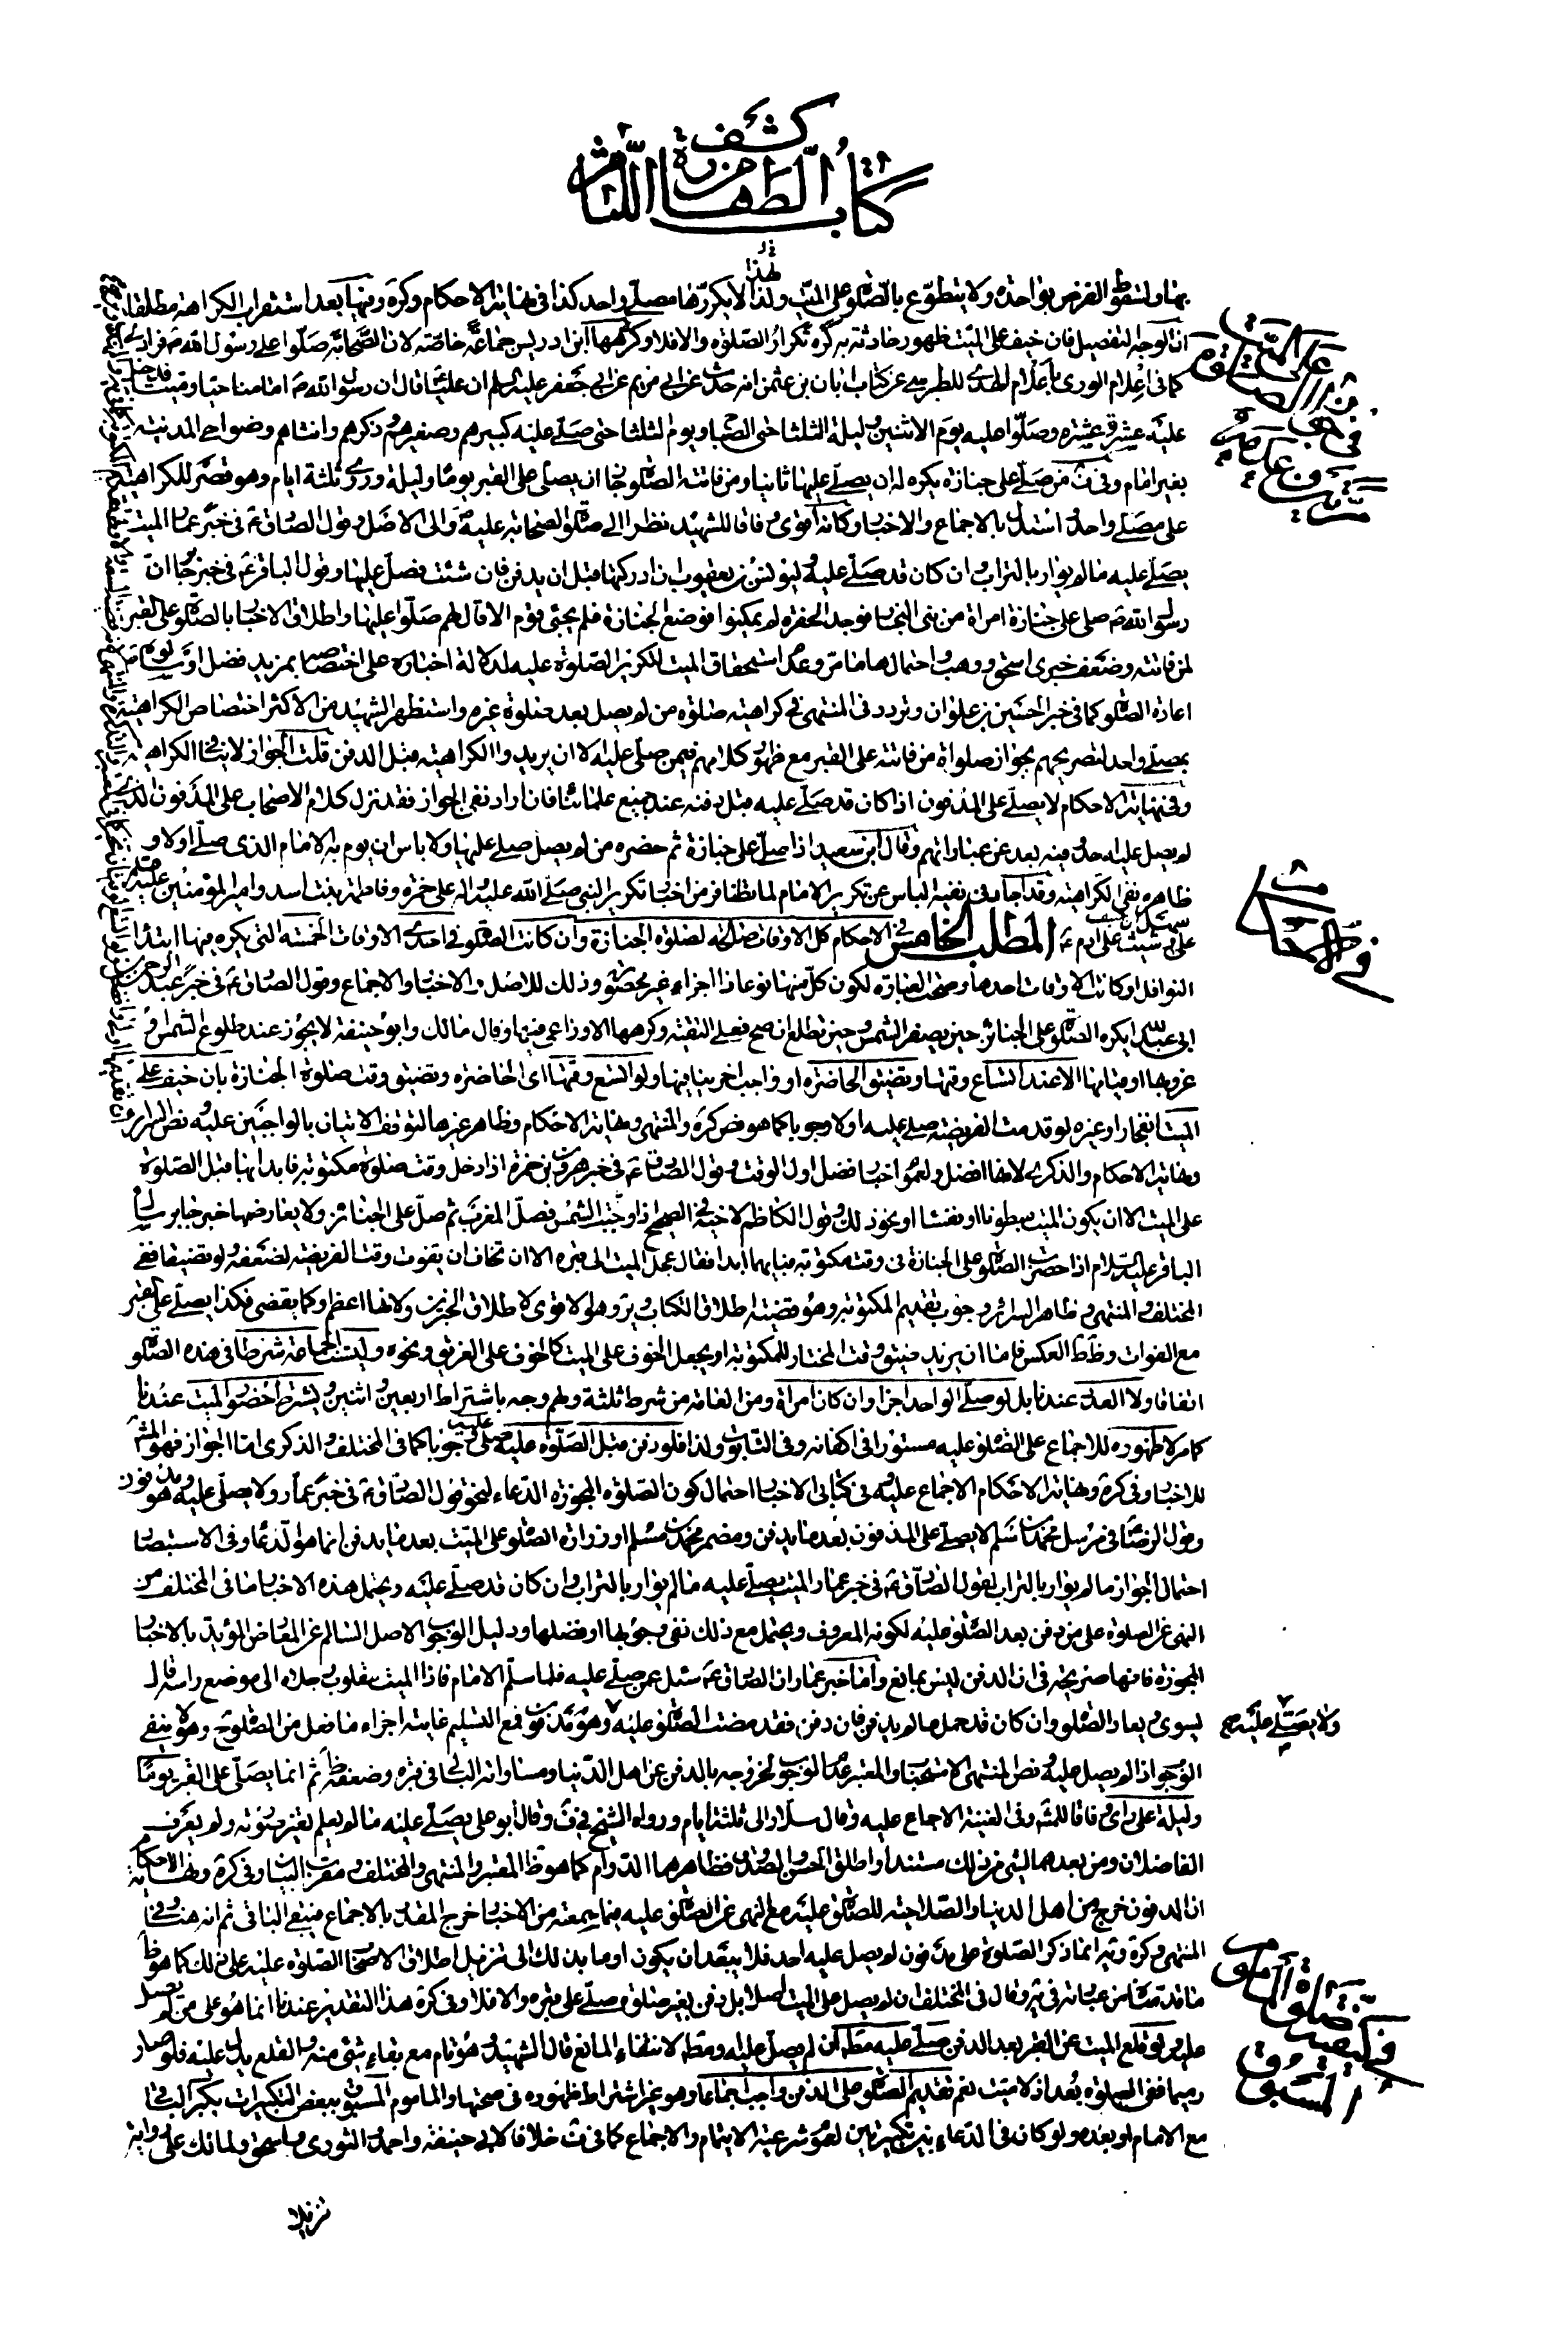 كشف
كتاب الطهارة اللثام
بها ولسقوط الفرض بواحدة ولا يتطوع بالصلوة على الميت ولذا لا يكررها مصلّي واحد كذا في نهاية الاحكام وكرة وفيها بعد استقراب الكراهة مطلقا
ان الوجه التفصيل فان خيف على الميت ظهور حادثة به كره تكرار الصلوة والا فلا وكرهها ابن ادريس جماعة خاصة لان الصحابة صلوا على رسول الله ص فرادى
كما في اعلام الورى باعلام الهدى للطبرسي عن كتاب ابان بن عثمن انه حدث عن ابي مريم عن ابي جعفر عليه السلم ان عليا قال ان رسول الله ص امامنا حيا وميتا فدخل
عليه عشرة عشرة وصلوا عليه يوم الاثنين وليلة الثلثا حتى الصباح ويوم الثلثا حتى صلى عليه كبيرهم وصغيرهم وذكرهم وانثاهم وضواحي المدينة
بغير امام وفي ف من صلى على جنازة يكره له ان يصلي عليها ثانيا ومن فاتته الصلوة جاز ان يصلي على القبر يوما وليلة وروى ثلثة ايام وهو قصر للكراهة
على مصلي واحد واستدل بالاجماع والاخبار وكانه اقوى وفاقا للشهيد نظرا الى صلوة الصحابة عليه ص والى الاصل وقول الصادق ع في خبر عمار الميت
يصلى عليه ما لم يوار بالتراب وان كان قد صلي عليه وليونس بن يعقوب ان ادركتها قبل ان يدفن فان شئت فصل عليها وقول الباقر ع في خبر جابر ان
رسول الله ص صلى على جنازة امراة من بني النجار فوجد الحفرة لم يمكنوا فوضع الجنازة فلم يجئ قوم الا قال لهم صلوا عليها واطلاق الاخبار بالصلوة على القبر
لمن فاتته وضعف خبري اسحق ووهب واحتمالهما ما مر وعدم استحقاق الميت لتكرير الصلوة عليه لدلالة اختباره على اختصاص بمزيد فضل
اعادة الصلوة كما في خبر الحسين بن علوان وتردد في المنتهى في كراهية صلوة من لم يصل بعد صلوة غيره واستظهر الشهيد من الاكثر اختصاص الكراهية
بمصلي واحد لتصريحهم بجواز صلوة من فاتته على القبر مع ظهور كلامهم فيمن صلى عليه الا ان يريدوا الكراهية قبل الدفن قلت الجواز لا ينافي الكراهية
وفي نهاية الاحكام لا يصلى على المدفون اذا كان قد صلي عليه قبل دفنه عند جميع علمائنا فان اراد نفي الجواز فقد نزل كلام الاصحاب على المدفون الذي
لم يصل عليه احد وفيه بعد عن عباراتهم وقال ابن سعيد اذا صلى على جنازة ثم حضره من لم يصل صلى عليها ولا باس ان يوم به الامام الذي صلى اولا و
ظاهره نفي الكراهية وقد اجاد في نفيه الباس عن تكرير الامام لما تظافر من اخبار تكرير النبي صلى الله عليه واله على حمزة وفاطمة بنت اسد وامير المؤمنين عليه السلم
سهل بن حنيف
على وشيث على ادم ع المطلب الخامس في الاحكام كل الاوقات صالحة لصلوة الجنازة وان كانت الصلوة في احدى الاوقات الخمسة التي يكره فيها ابتداء
النوافل او كانت الاوقات احدها وصحت العبارة لكون كل منها نوعا ذا اجزاء غير محصورة وذلك للاصل والاخبار والاجماع وقول الصادق ع في خبر عبد الرحمن بن
ابي عبد الله يكره الصلوة على الجنائز حين يصفر الشمس وحين تطلع ان صح فعلى التقية وكرهها الاوزاعي فيها وقال مالك وابو حنيفة لا يجوز عند طلوع الشمس و
غروبها او قيامها الا عند اتساع وقتها وتضيق الحاضرة او واجب اخر ينافيها ولو اتسع وقتها اي الحاضرة وتضيق وقت صلوة الجنازة بان خيف على
الميت انفجار او غيره لو قدمت الفريضة صلى عليه اولا وجوبا كما هو نص كرة والمنتهى ونهاية الاحكام وظاهر غيرها لتوقف الاتيان بالواجبين عليه ونص السرائر
ونهاية الاحكام والذكرى لانها افضل ولعموم اخبار فضل اول الوقت وقول الصادق ع في خبر هرون بن حمزة اذا دخل وقت صلوة مكتوبة فابدا بها قبل الصلوة
على الميت الا ان يكون الميت مبطونا او نفساء او نحو ذلك وقول الكاظم لاخيه في الصحيح اذا وجبت الشمس فصل المغرب ثم صل على الجنائز ولا يعارضها خبر جابر سال
الباقر عليه السلام اذا حضرت الصلوة على الجنازة في وقت مكتوبة فبايهما ابدا فقال عجل الميت الى قبره الا ان تخاف ان يفوت وقت الفريضة لضعفه ولو تضيقا ففي
المختلف والمنتهى وظاهر السرائر وجوب تقديم المكتوبة وهو قضية اطلاق الكتاب وير وهو الاقوى لاطلاق الخبرين ولانها اعظم وكما يقضى فكذا يصلى على القبر
مع الفوات وظ ط العكس فاما ان يريد ضيق وقت المختار للمكتوبة او يجعل الخوف على الميت كالخوف على الغريق ونحوه وليست الجماعة شرطا في هذه الصلوة
اتفاقا ولا العدد عندنا بل لو صلى الواحد اجزا وان كان امراة ومن العامة من شرط ثلثة ولهم وجه باشتراط اربعين واثنين ويشترط حضور الميت عندنا
كما مر لا ظهوره للاجماع على الصلوة عليه مستورا في اكفانه وفي التابوت ولذا فلو دفن قبل الصلوة عليه صلى عليه وجوبا كما في المختلف والذكرى اما الجواز فهو المشهور
للاخبار وفي كرة ونهاية الاحكام الاجماع عليه وفي كتابي الاخبار احتمال كون الصلوة المجوزة الدعاء لنحو قول الصادق ع في خبر عمار ولا يصلى عليه وهو مدفون
وقول الرضا في مرسل محمد بن اسلم لا يصلى على المدفون بعد ما يدفن ومضمر محمد بن مسلم او زرارة الصلوة على الميت بعد ما يدفن انما هو الدعاء وفي الاستبصار
احتمال الجواز ما لم يوار بالتراب لقول الصادق ع في خبر عمار الميت يصلى عليه ما لم يوار بالتراب وان كان قد صلي عليه ويحتمل هذه الاخبار ما في المختلف من
النهي عن الصلوة على من دفن بعد الصلوة عليه لكونه المعروف ويحتمل مع ذلك نفي وجوبها او فضلها ودليل الوجوب الاصل السالم عن المعارض المؤيد بالاخبار
المجوزة فانها صريحة في ان الدفن ليس بمانع واما خبر عمار ان الصادق ع سئل عمن صلى عليه فلما سلم الامام فاذا الميت مقلوب رجلاه الى موضع راسه قال
يسوى ويعاد الصلوة وان كان قد حمل ما لم يدفن فان دفن فقد مضت الصلوة عليه وهو مدفون فمع التسليم غايته اجزاء ما فعل من الصلوة وهو لا ينفي
الوجوب اذا لم يصل عليه ونص المنتهى الاستحباب والمعتبر عدم الوجوب لخروجه بالدفن عن اهل الدنيا ومساواته البالي في قبره وضعفه ظ ثم انما يصلى على القبر يوما
وليلة على راي وفاقا للمشهور وفي الغنية الاجماع عليه وقال سلار الى ثلثة ايام ورواه الشيخ في ف وقال ابو علي يصلى عليه ما لم يعلم تغير صورته ولم يعرف
الفاضلان ومن بعدهما لشئ من ذلك مستندا واطلق الحسن والصدوق فظاهرهما الدوام كما هو ظ المعتبر والمنتهى والمختلف ومقرب البيان وفي كرة ونهاية الاحكام
ان المدفون خرج من اهل الدنيا والصلاحية للصلوة عليه مع النهي عن الصلوة عليه فيما سمعته من الاخبار خرج المقدر بالاجماع فيبقى الباقي ثم انه هنا وفي
المنتهى وكرة وير انما ذكر الصلوة على مدفون لم يصل عليه احد فلا يبعد ان يكون اوما بذلك الى تنزيل اطلاق الاصحاب الصلوة عليه على ذلك كما هو ظ
ما قدمناه من عبارته في ير وقال في المختلف ان لم يصل على الميت اصلا بل دفن بغير صلوة صلى على قبره والا فلا وفي كرة هذا التقدير عندنا انما هو على من لم يصل
عليه ولو قلع الميت عن القبر بعد الدفن صلى عليه مطلقا ان لم يصل عليه ومطلقا لانتفاء المانع قال الشهيد وهو تام مع بقاء شئ منه والقلع يدل عليه فلو صار
رميما ففي الصلوة بعد اذ لا ميت نعم تقديم الصلوة على الدفن واجب اجماعا وهو غير اشتراط ظهوره في صحتها والماموم المسبوق ببعض التكبيرات يكبر الباقي
مع الامام او بعده ولو كان في الدعاء بين تكبيرتين لعموم شرعية الايتمام والاجماع كما في ف خلافا لابي حنيفة واحمد والثوري واسحق ولمالك على رواية
ولا يصلى عليه
في الاحكام
في كيفية صلوة الماموم
المسبوق